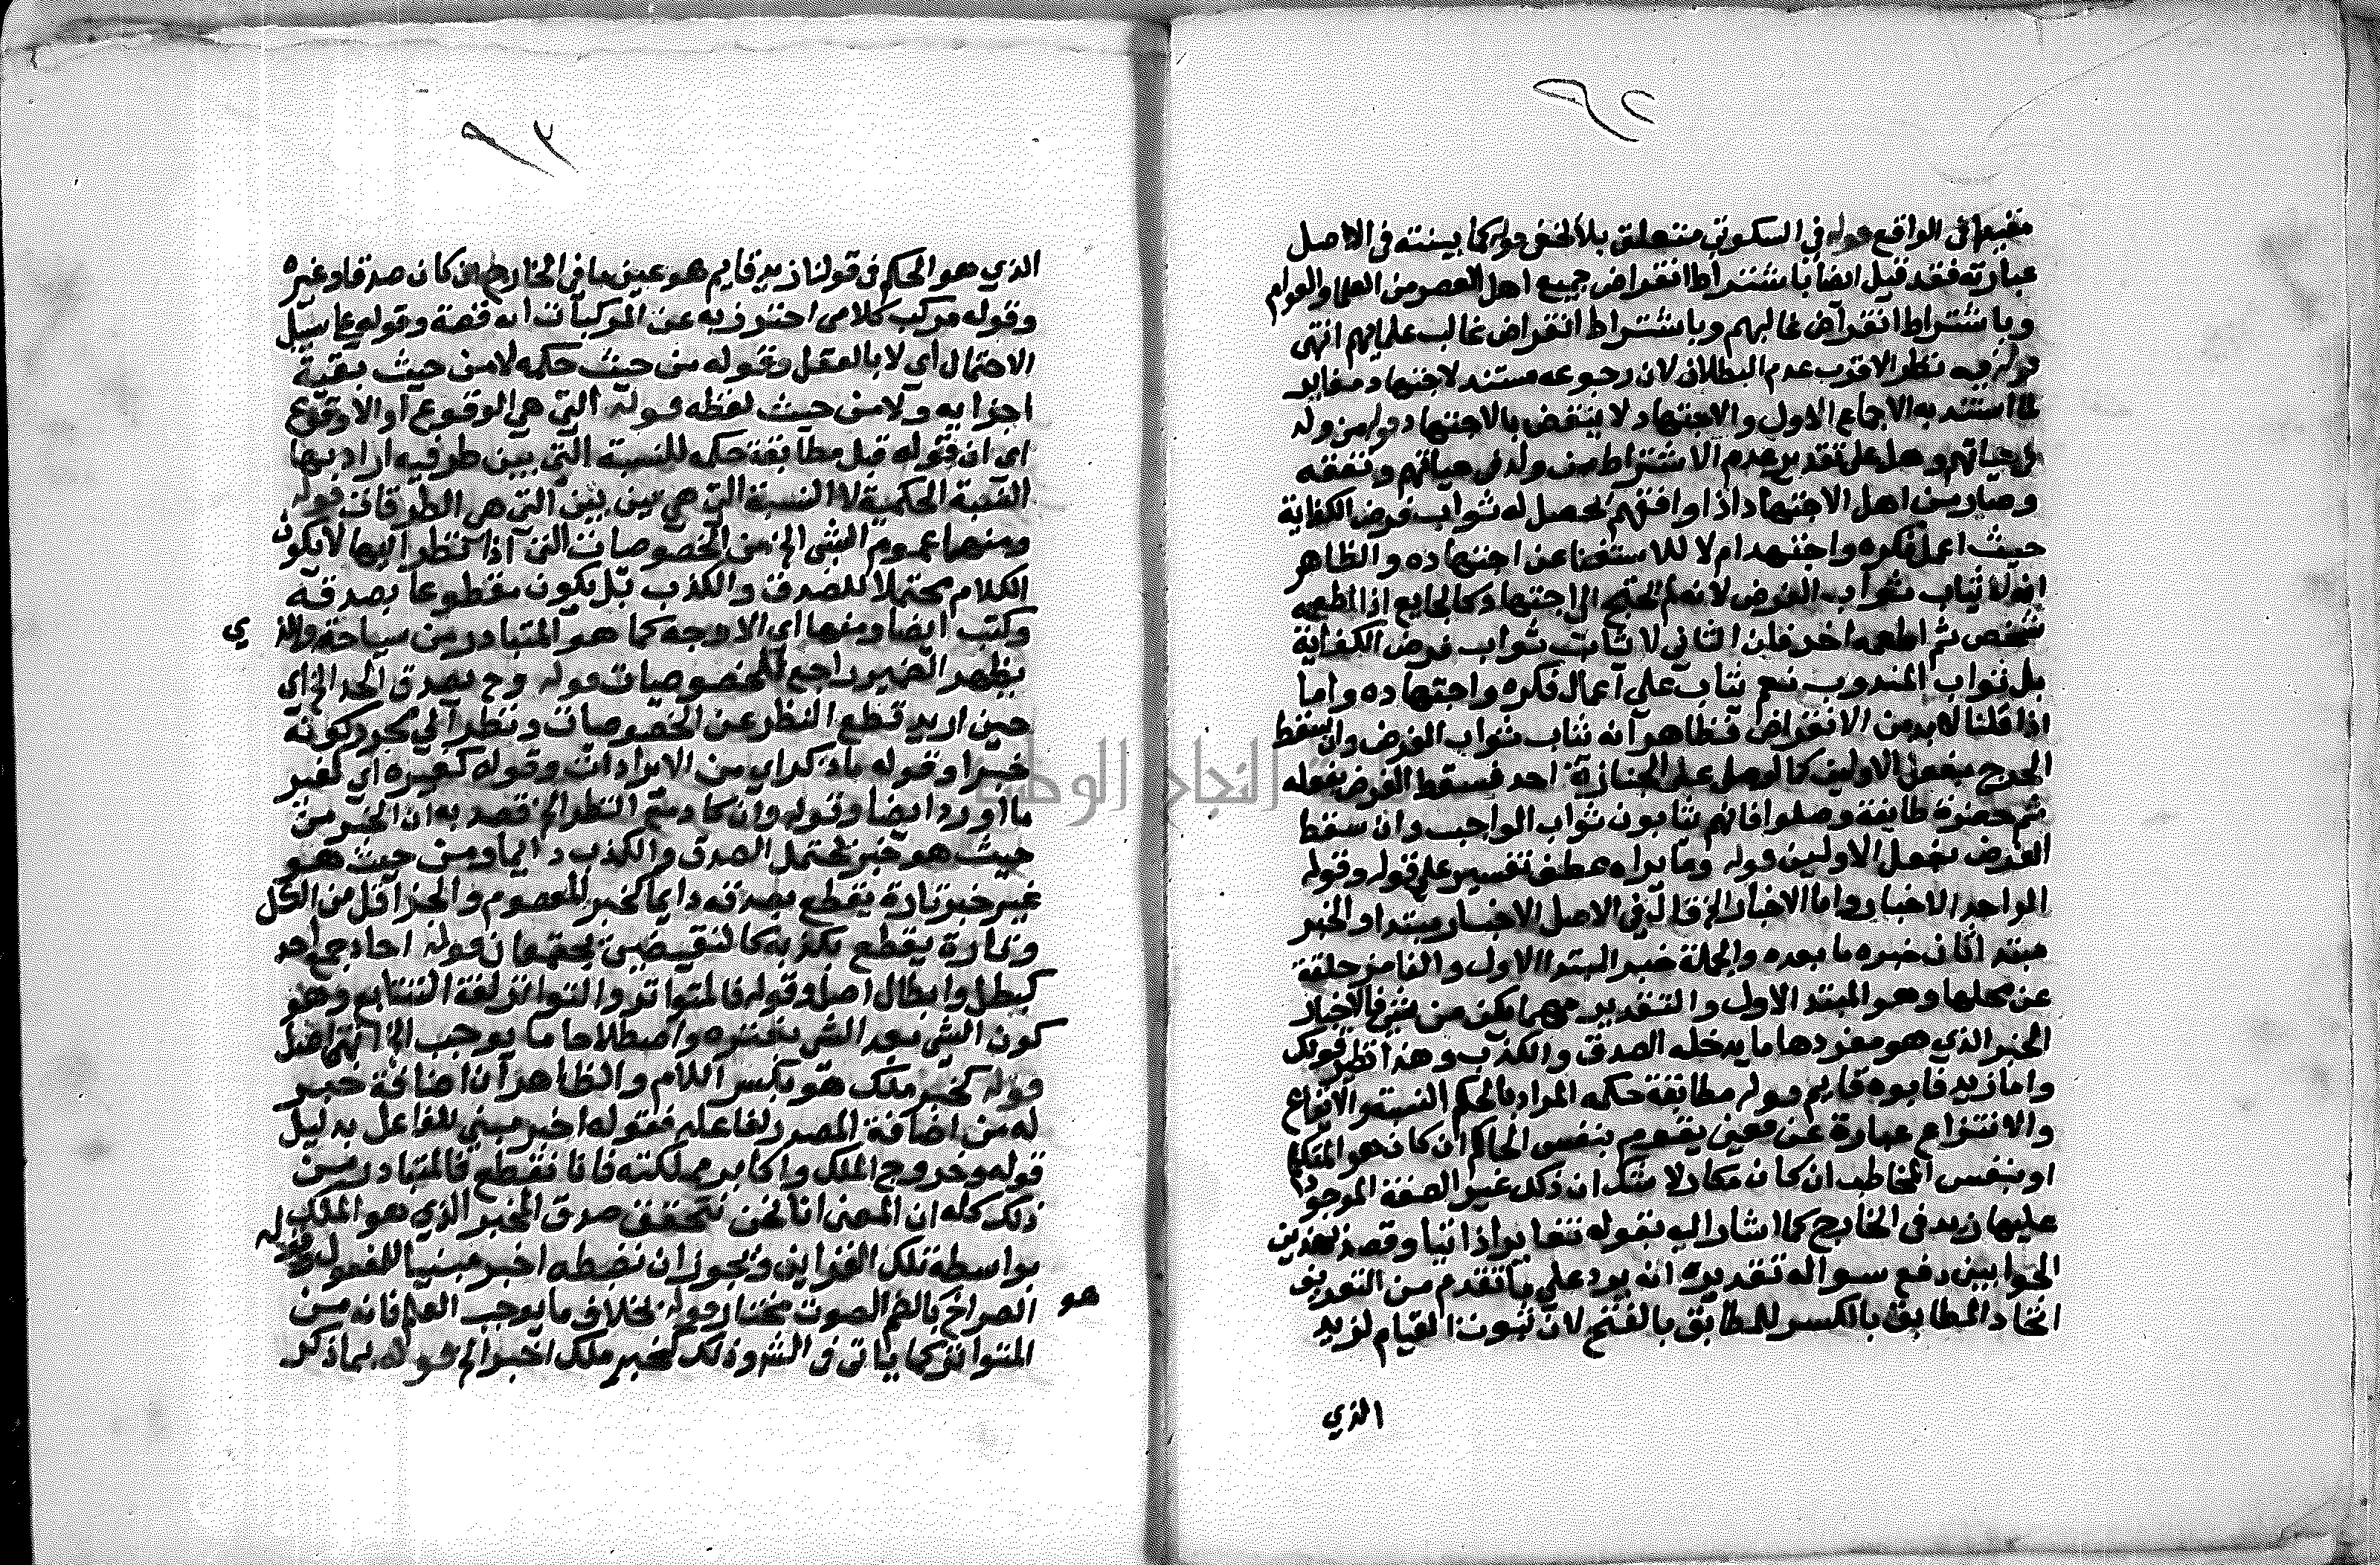 ٩٢
مقيدا في الواقع قوله في السكوتي متعلق بلا الخفي قوله كما بينته في الاصل
عبارته فقد قيل ايضا باشتراط انقراض جميع اهل العصر من العلما والعوام
وباشتراط انقراض غالبهم وباشتراط انقراض غالب علمايهم انتهى
قوله فيه نظر الاقرب عدم البطلان لان رجوعه مستند لاجتهاد مغاير
لما استند به الاجماع الاول والاجتهاد لا ينقض بالاجتهاد قوله من ولد
في حياتهم وهل على تقدير عدم الاشتراط من ولد في حياتهم وتفقه
وصار من اهل الاجتهاد اذا وافقهم يحصل له ثواب فرض الكفاية
حيث اعمل فكره واجتهد ام لا للاستغنا عن اجتهاده والظاهر
انه لا يثاب ثواب الفرض لانه لم الى اجتهاد كالجايع اذا اطعمه
شخص ثم اطعمه اخر فان الثاني لا يثاب ثواب فرض الكفاية
بل ثواب المندوب نعم يثاب على اعمال فكره واجتهاده واما
اذا قلنا لا بد من الانقراض فظاهر انه يثاب ثواب الفرض وان سقط
الحرج بفعل الاولين كما لو صلى على الجنازة احد فسقط الفرض بفعله
ثم حضرة طايفة وصلوا فانهم يثابون ثواب الواجب وان سقط
الفرض بفعل الاولين قوله وما يراه عطف تفسير على قوله وقوله
الواحد الاخبار واما الاخبار الخ قال في الاصل الاخبار مبتدا والخبر
مبتدا ثان خبره ما بعده والجملة خبر المبتدا الاول والفا مزحلقة
عن محلها وهو المبتدا الاول والتقدير مهما يكن من شي فالاخبار
الخبر الذي هو مفردها ما يدخله الصدق والكذب وهذا نظير قولك
واما زيد فابوه قايم قوله مطابقة حكمه المراد بالحكم النسبة والايقاع
والانتزاع عبارة عن معين يقوم بنفس الحاكم ان كان هو المتكلم
او بنفس المخاطب ان كان ولا شك ان ذلك غير الصفة الموجود
عليها زيد في الخارج كما اشار اليه بقوله تغايرا ذاتيا وقصد بهذين
الجوابين دفع سواله تقديره انه يرد على ما تقدم من التعريف
اتحاد المطابق بالكسر للمطابق بالفتح لان ثبوت القيام لزيد
الذي
٩٣
الذي هو الحكم في قولنا زيد قايم هو عين ما في الخارج ان كان صدقا وغيره
وقوله مركب كلامي احترز به عن المركبات وقوله على سبيل
الاحتمال اي لا بالعقل وقوله من حيث حكمه لا من حيث بقية
اجزايه ولا من حيث لفظه قوله التي هي الوقوع او اللاوقوع
اي ان قوله قبل مطابقة حكمه للنسبة التي بين طرفيه اراد بها
النسبة الحكمية لا النسبة التي هي بين بين التي هي الطرفان قوله
ومنها عموم الشي الخ من الخصوصات التي اذا نظر اليها لا يكون
الكلام محتملا للصدق والكذب بل يكون مقطوعا بصدقه
وكتب ايضا ومنها اي الاوجه كما هو المتبادر من سياحة والذي
يظهر الضمير راجع للخصوصيات قوله وح يصدق الحد الخ اي
حين اريد قطع النظر عن الخصوصات ونظر الى مجرد كونه
خبرا وقوله ما ذكر اي من الايرادات وقوله كغيره اي كغير
ما اورد ايضا وقوله وان كا د مع النظر الخ قصد به ان الخبر من
حيث هو خبر يحتمل الصدق والكذب دايما ومن حيث هو
غير خبر تارة يقطع بصدقه دايما كخبر المعصوم والجزا اقل من الكل
وتارة يقطع بكذبه كالنقيضين يجتمعان قوله احاد جمع احد
كبطل وابطال اصل وقوله فالمتواتر والتواتر لغة التتابع وهو
كون الشي بعد الشي بفترة واصطلاحا ما يوجب الخ انتهى اصل
قوله كخبر ملك هو بكسر اللام والظاهر ان اضافة خبر
له من اضافة المصدر لفاعله فقوله اخبر مبني للفاعل بدليل
قوله وخروج الملك واكابر مملكته فانا نقطع فالمتبادر من
ذلك كله ان المعنى انا نحن نتحقق صدق المخبر الذي هو الملك
بواسطة تلك القراين ويجوز ان نضبطه اخبر مبنيا للمفعول قوله
الصراخ بالضم الصوت مختار قوله بخلاف ما يوجب العلم فانه من هو
المتواتر كما ياتي في الشر وذلك كخبر ملك اخبر الخ قوله بما ذكر